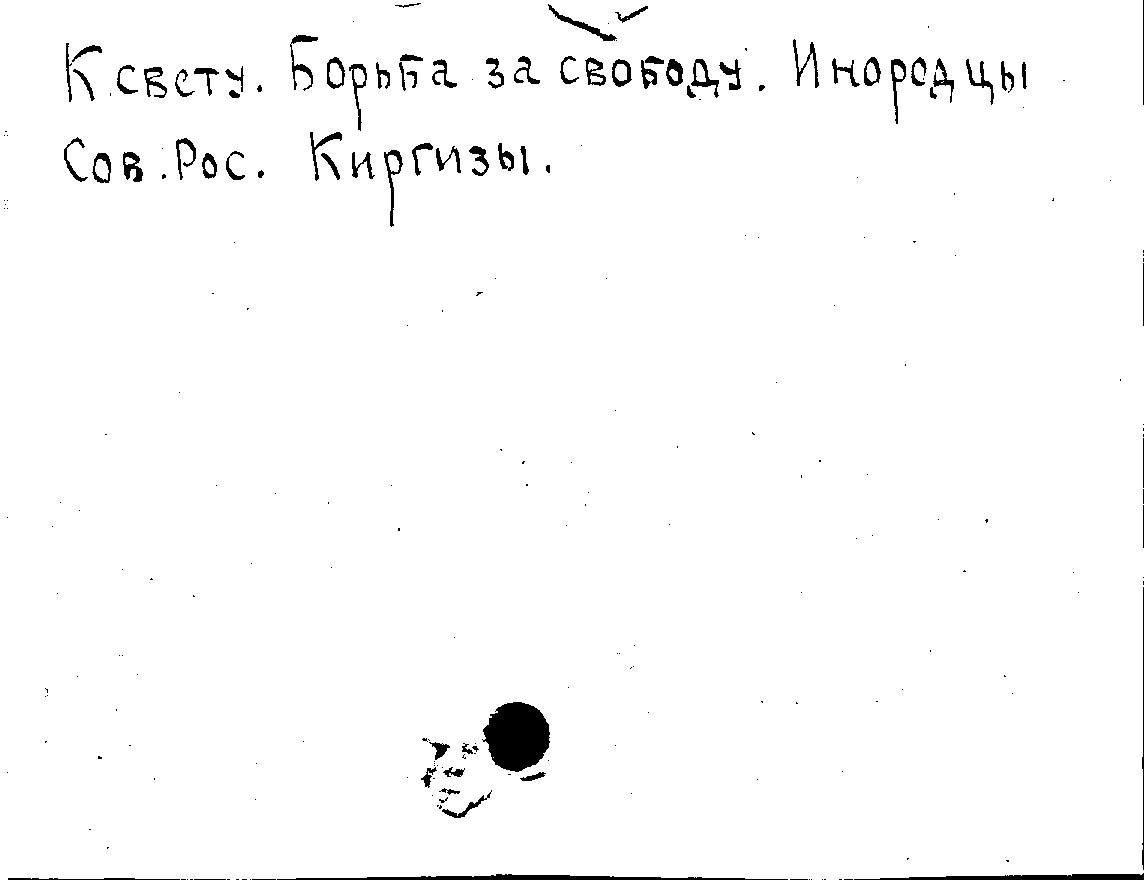 К свету. Борьба за свободу. Инородцы
Сов. Рос. Киргизы.